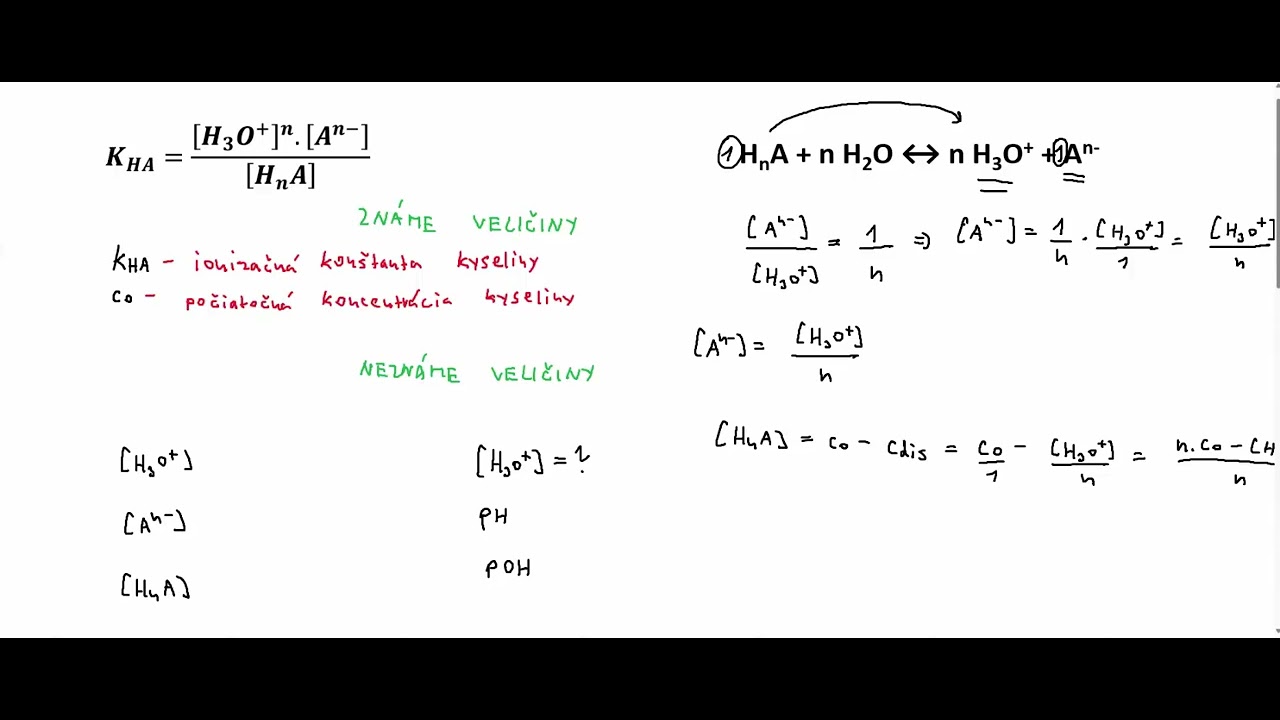 K_HA = [H₃O⁺]ⁿ.[Aⁿ⁻] / [HₙA]
ZNÁME VELIČINY
K_HA - ionizačná konštanta kyseliny
c₀ - počiatočná koncentrácia kyseliny
NEZNÁME VELIČINY
[H₃O⁺]
[Aⁿ⁻]
[HₙA]
[H₃O⁺] = ?
pH
pOH
1 HₙA + n H₂O ↔ n H₃O⁺ + 1 Aⁿ⁻
[Aⁿ⁻] / [H₃O⁺] = 1/n ⇒ [Aⁿ⁻] = 1/n · [H₃O⁺]/1 = [H₃O⁺]/n
[Aⁿ⁻] = [H₃O⁺]/n
[HₙA] = c₀ - cdis = c₀/1 - [H₃O⁺]/n = n.c₀ - [H / n